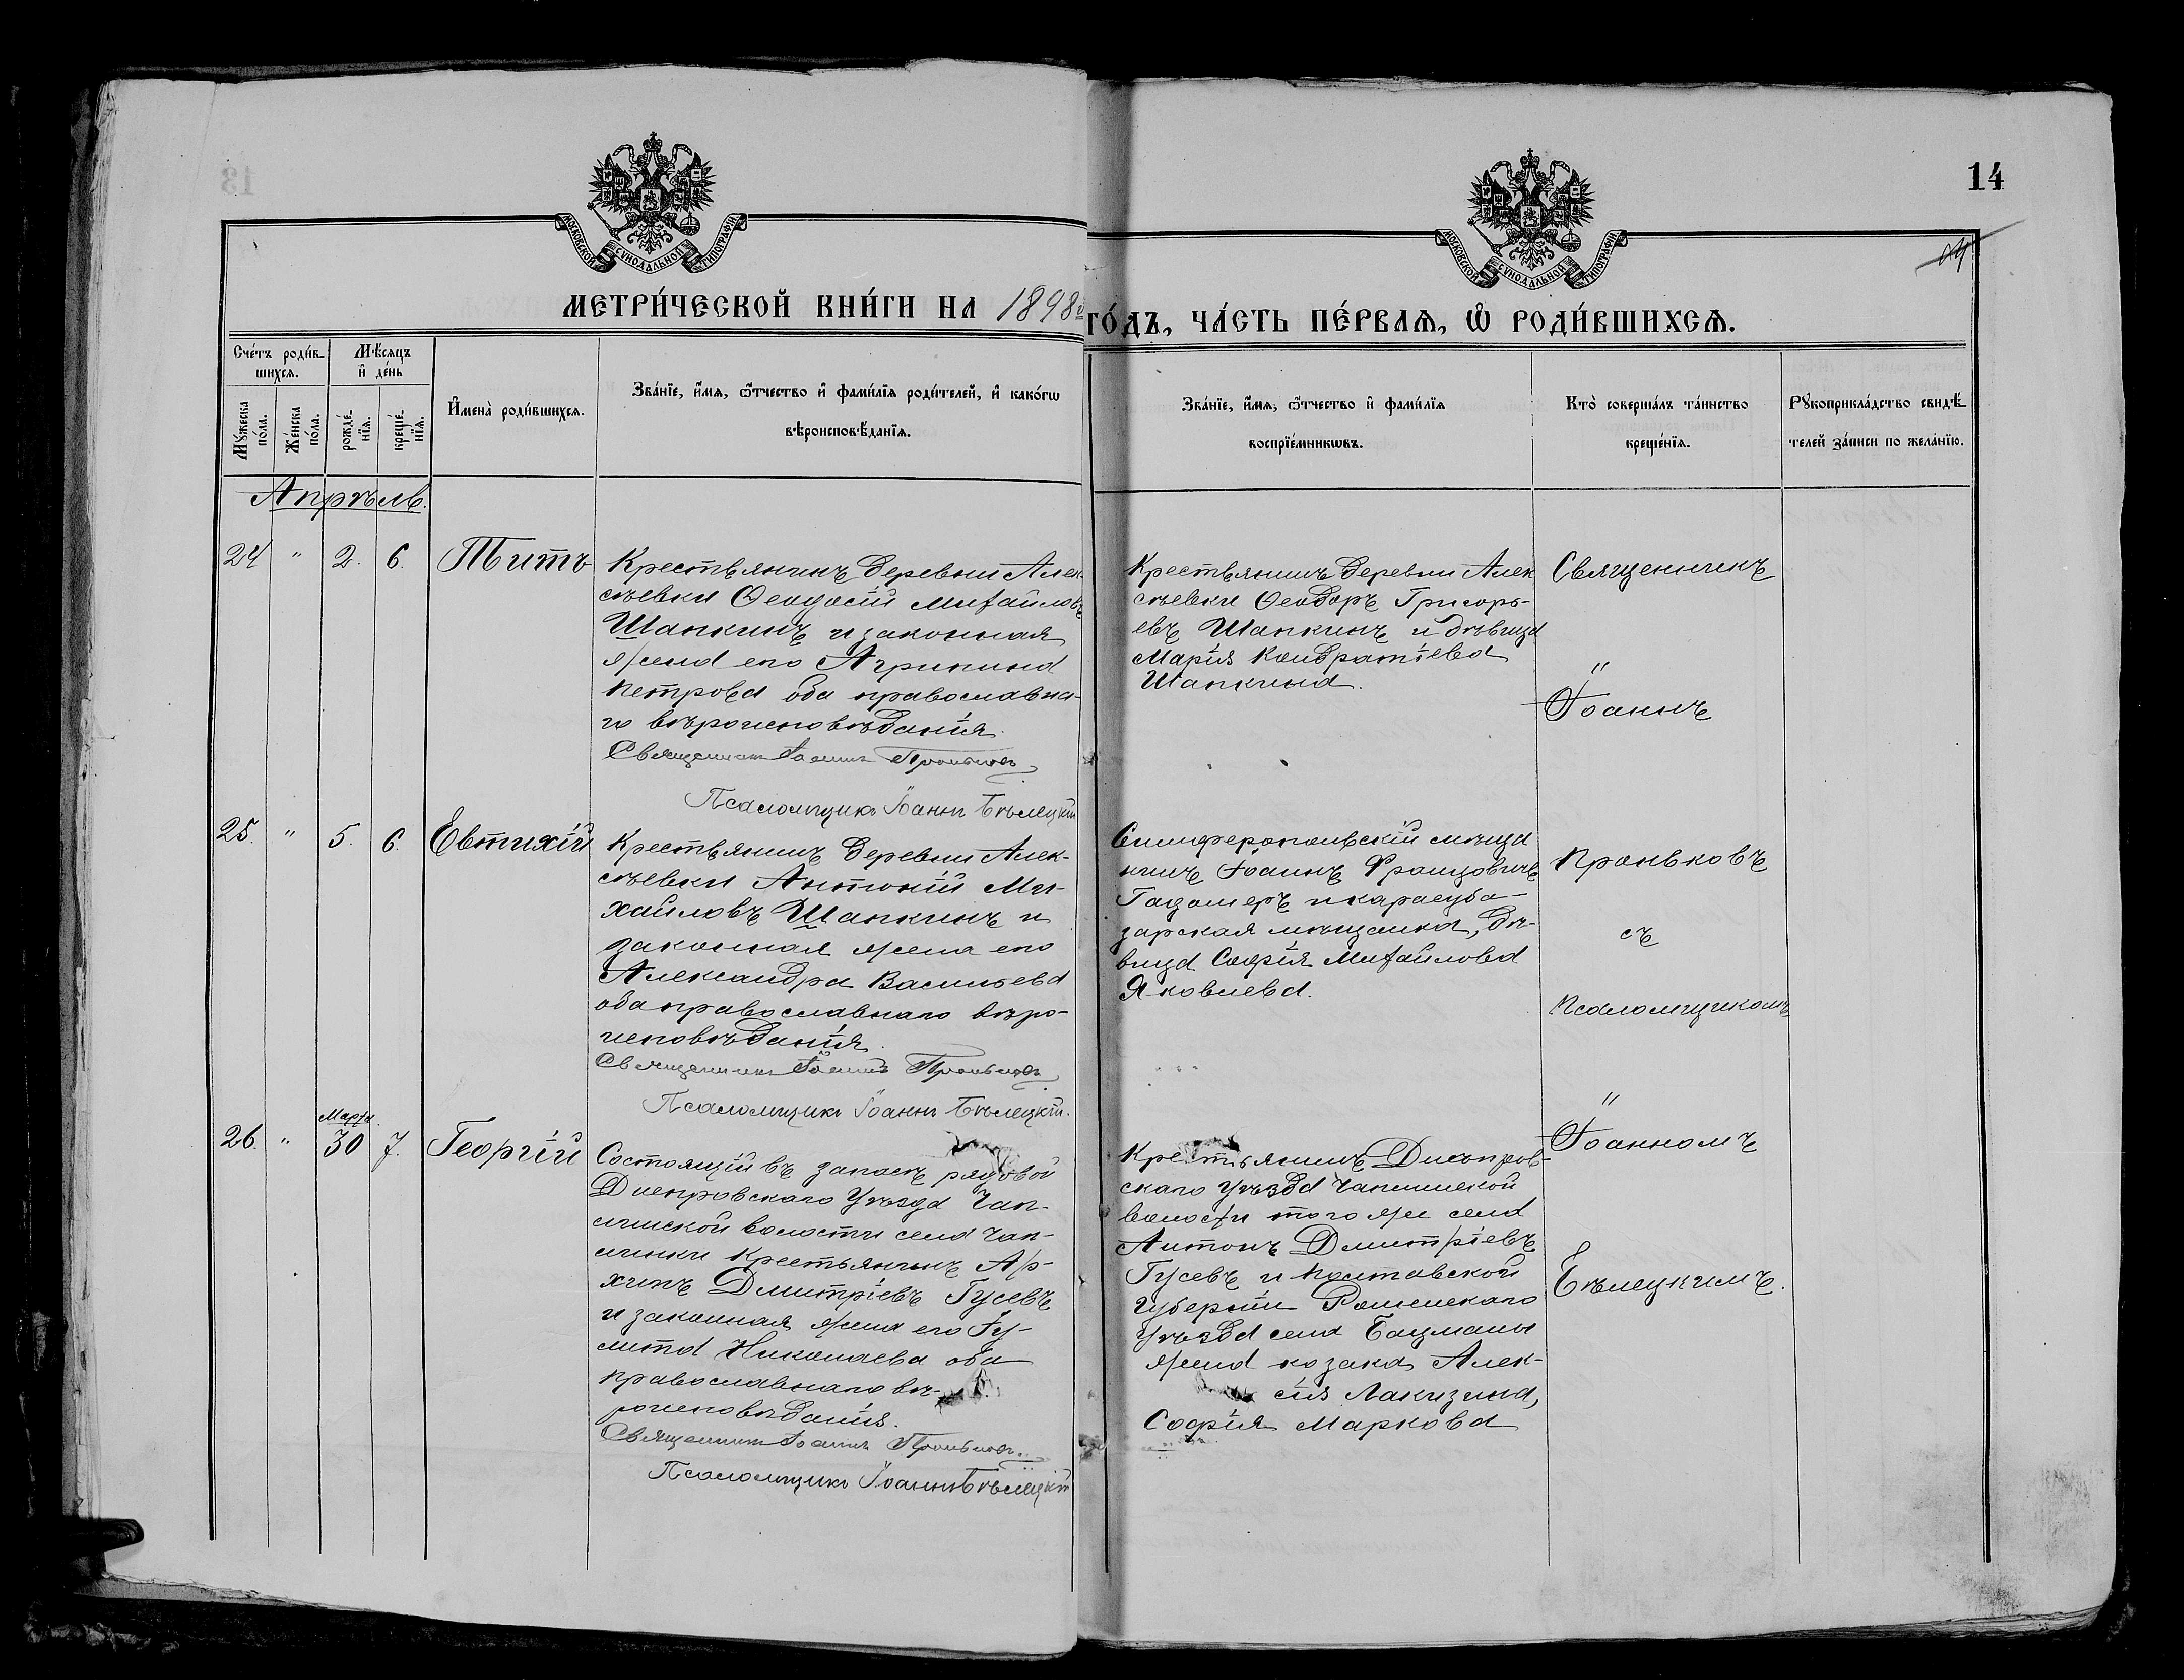 14
МОСКОВСКОЙ СУНОДАЛЬНОЙ ТИПОГРАФІИ
МОСКОВСКОЙ СУНОДАЛЬНОЙ ТИПОГРАФІИ
МЕТРИ́ЧЕСКОЙ КНИ́ГИ НА 1898й
ГО́ДЪ, ЧА́СТЬ ПЕ́РВАѦ, Ѡ҆ РОДИ́ВШИХСѦ.
Сче́тъ роди́в-
шихсѧ.
Мѣ́сѧцъ
и҆ де́нь
Мꙋ́жеска
по́ла.
Же́нска
по́ла.
рожде́-
нїѧ.
креще́-
нїѧ.
И҆мена̀ роди́вшихсѧ.
Зва́нїе, и҆́мѧ, ѻ҆́тчество и҆ фами́лїѧ роди́телей, и҆ како́гѡ
вѣроисповѣ́данїѧ.
Зва́нїе, и҆́мѧ, ѻ҆́тчество и҆ фами́лїѧ
воспрїе́мникѡвъ.
Кто̀ соверша́лъ та́инство
креще́нїѧ.
Рꙋкоприкла́дство свидѣ́-
телей за́писи по жела́нїю.
Апрѣль.
24 " 2. 6. Титъ
Крестьянинъ деревни Алек
сѣевки Ѳеодосій Михайловъ
Шапкинъ и законная
жена его Агрипина
Петрова оба православна-
го вѣроисповѣданія.
Священникъ Іоаннъ Проньковъ
Псаломщикъ Іоаннъ Бѣлецкій
Крестьянинъ деревни Алек
сѣевки Ѳеодоръ Григорь-
евъ Шапкинъ и дѣвица
Марія Кондратіева
Шапкина.
25. " 5. 6. Евтихій
Крестьянинъ деревни Алек-
сѣевки Антоній Ми-
хайловъ Шапкинъ и
законная жена его
Александра Васильева
оба православнаго вѣро-
исповѣданія.
Священникъ Іоаннъ Проньковъ
Псаломщикъ Іоаннъ Бѣлецкій.
Симферопольскій мѣща
нинъ Іоаннъ Францовичъ
и карасуба-
зарская мѣщанка, дѣ-
вица Софія Михайлова
Яковлева.
26. " Марта 30 7. Георгій
Состоящій въ запасѣ рядовой
Днепровскаго Уѣзда Чап-
линской волости села Чап-
линки Крестьянинъ Ар-
хипъ Дмитріевъ Гусевъ
и законная жена его Іу-
лита Николаева оба
православнаго вѣ-
роисповѣданія.
Священникъ Іоаннъ Проньковъ.
Псаломщикъ Іоаннъ Бѣлецкій
Крестьянинъ Днѣпров-
скаго Уѣзда Чаплинской
волости того же села
Антонъ Дмитріевъ
Гусевъ и Полтавской
губерніи Роменскаго
Уѣзда села Бацманы
жена козака Алек-
сія Лакизина,
Софія Маркова
Священникъ
"
Іоаннъ
Проньковъ
съ
Псаломщикомъ
"
Іоанномъ
Бѣлецкимъ.